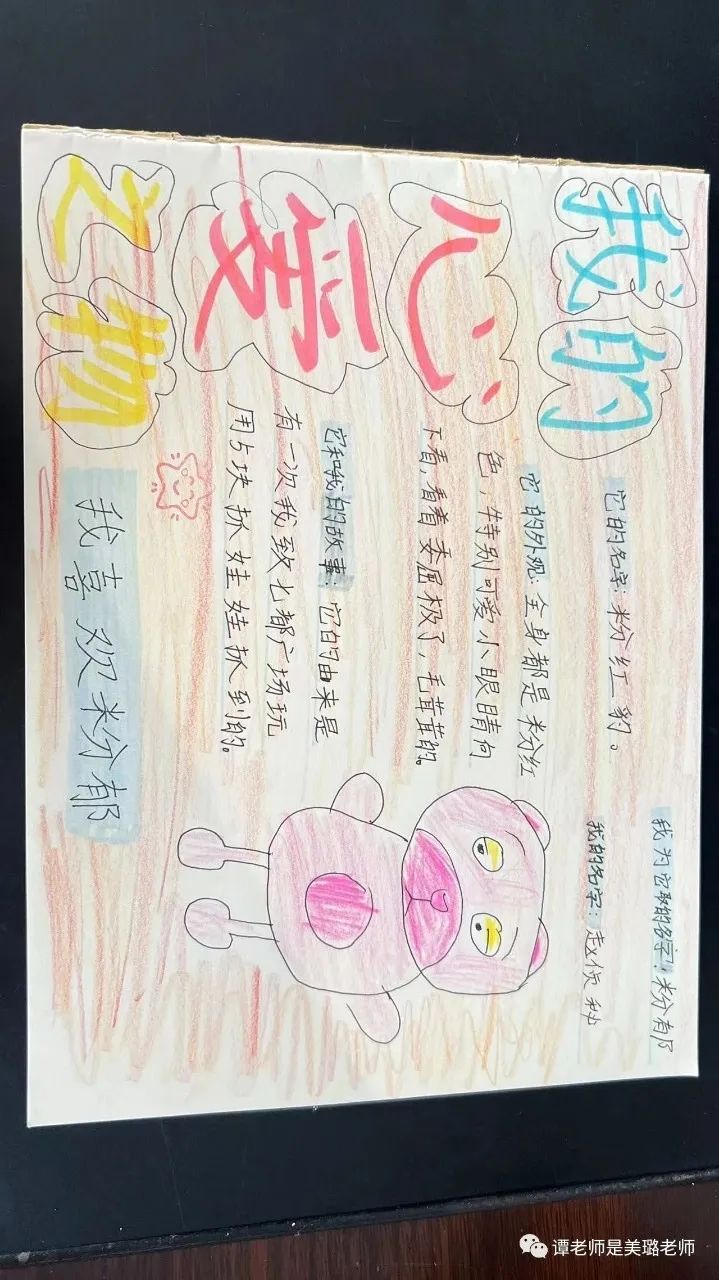 我的
心
爱
之物
我为它取的名字：粉郁
我的名字：赵
它的名字：粉红豹。
它的外观：全身都是粉红
色，特别可爱小眼睛向
下看，看着委屈极了，毛茸茸的。
它和我的故事：它的由来是
有一次我致七都广场玩
用5块抓娃娃抓到的。
我喜欢粉郁
谭老师是美璐老师